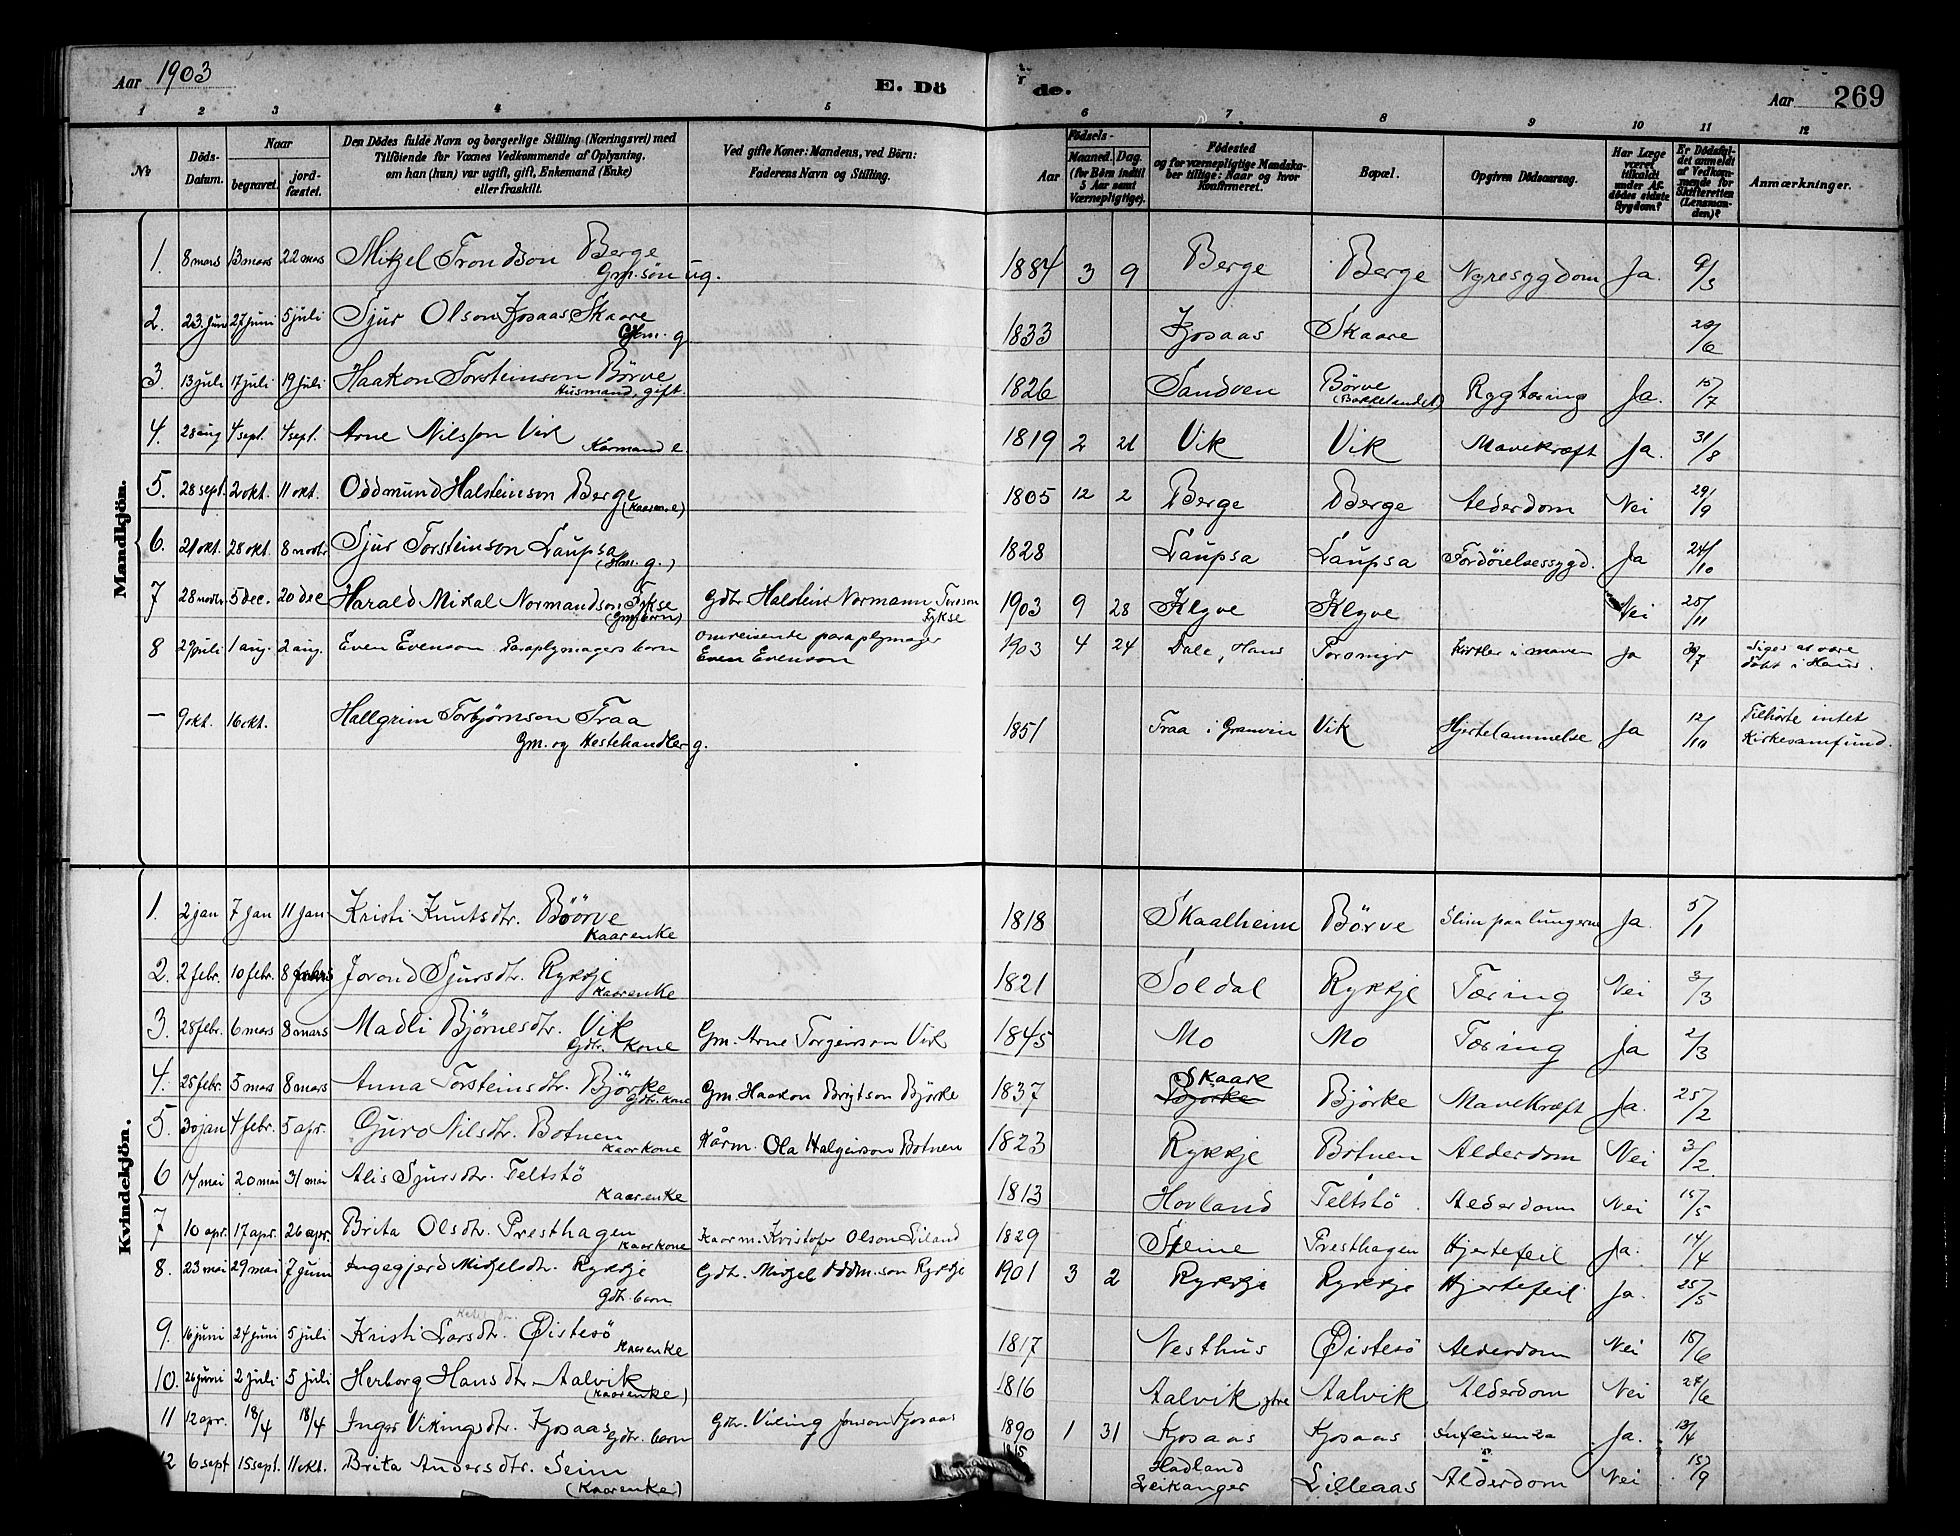 Aar 1903 E. Dö de. Aar 269
1 2 3 4 5 6 7 8 9 10 11 12
№ Döds-Datum. Naar begravet. jordfæstet. Den Dödes fulde Navn og borgerlige Stilling (Næringsvei) med Tilföiende for Voxnes Vedkommende af Oplysning, om han (hun) var ugift, gift, Enkemand (Enke) eller fraskilt. Ved gifte Koner: Mandens, ved Börn: Faderens Navn og Stilling. Födsels- Aar Maaned. Dag. (for Börn indtil 5 Aar samt Værnepligtige). Födested og for værnepligtige Mandskaber tillige: Naar og hvor konfirmeret. Bopæl. Opgiven Dödsaarsag. Har Læge været tilkaldt under Afdödes sidste Sygdom? Er Dödsfaldet anmeldt af Vedkommende for Skifteretten (Lensmanden)? Anmærkninger.
Mandkjön.
1. 8 mars 13 mars 22 mars Mikjel Trondson Berge Gm.søn ug. 1884 3 9 Berge Berge Nyresygdom Ja. 9/3
2. 23. juni 27 juni 5 juli Sjur Olson Kjosaas Skaare g. 1833 Kjosaas Skaare /6
3. 13 juli 17 juli 19 juli Haakon Torsteinson Börve Husmand, gift. 1826 Sandven Börve (Bakkelandet) Rygtæring Ja. 15/7
4. 28 aug 4 sept. 4 sept. Arne Nilsson Vik Kormand e. 1819 2 21 Vik Vik Mavekræft Ja. 31/8
5. 28 sept. 2 okt. 11 okt. Oddmund Halsteinson Berge (Kaarm. e) 1805 12 2 Berge Berge Alderdom Nei 29/9
6. 21 okt. 28 okt. 8 novbr Sjur Torsteinson Laupsa (Hm. g.) 1828 Laupsa Laupsa Fordöielsessygd. Ja 24/10
7 28 novbr 5 dec. 20 dec Harald Mikal Normandson Fykse (Gm. barn) Gdbr. Halstein Normann Toreson Fykse 1903 9 28 Klyve Klyve Nei 25/11
8 29 juli 1 aug. 2 aug. Even Evenson Paraplymagers barn omreisende paraplymager Even Evenson 1903 4 24 Dale, Haus Poromyr Kirtler i maven Ja 30/7 Siges at være döbt i Haus.
— 9 okt. 16 okt. Hallgrim Torbjørnson Traa Gm. og Hestehandler g. 1851 Traa i Granvin Vik Hjertelammelse Ja 12/10 Tilhörte intet Kirkesamfund.
Kvindekjön.
1. 2 jan 7 jan 11 jan Kristi Knutsdtr. Böörve Kaarenke 1818 Skaalheim Börve Slim paa lungerne Ja. 5/1
2. 2 febr. 10 febr. 8 mars Jorond Sjursdtr. Rykkje Kaarenke 1821 Soldal Rykkje Tæring Nei 3/3
3. 28 febr. 6 mars 8 mars Madli Björnesdtr. Vik Gdbr. Kone Gm. Arne Torgeirson Vik 1845 Mo Mo Tæring Ja 2/3
4. 25 febr. 5 mars 8 mars Anna Torsteinsdtr. Björke Gdbr. kone Gm. Haakon Brigtson Björke 1837 Skaare Björke Björke Mavekræft Ja. 25/2
5. 30 jan 4 febr. 5 apr. Guro Nilsdtr. Botnen Kaarkone Kårm. Ola Halgeirson Botnen 1823 Rykkje Botnen Alderdom Nei 3/2
6 14 mai 20 mai 31 mai Alis Sjursdtr. Teltstö Kaarenke 1813 Hovland Teltstö Alderdom Nei 15/5
7 10 apr. 17 apr. 26 apr. Brita Olsdtr. Presthagen Kaarkone Kaarm. Kristofr Olson Eiland 1829 Steine Presthagen Hjertefeil Ja. 14/4
8. 23 mai 29 mai 7 juni Ingegjerd Mikjelsdtr. Rykkje Gdbr. barn Gdbr. Mikjel Oddm.son Rykkje 1901 3 2 Rykkje Rykkje Hjertefeil Ja. 25/5
9. 16 juni 24 juni 5 juli Kristi Larsdtr. Øistesö Kaarenke 1817 Nesthus Øistesö Alderdom Nei 18/6
10. 26 juni 2 juli 5 juli Herborg Hansdtr. Aalvik (Kaarenke) 1816 Aalvik ytre Aalvik Alderdom Nei /6
11 12 apr. 18/4 18/4 Inger Vikingsdtr. Kjosaas Gdbr. barn Gdbr. Viking Jonson Kjosaas 1890 1 31 Kjosaas Kjosaas Influensa Ja. 13/4
12 6 sept 15 sept. 11 okt. Brita Andersdtr. Seim (Kaarenke) 1815 Hadland Leikanger Lilleaas Alderdom Nei 15/9